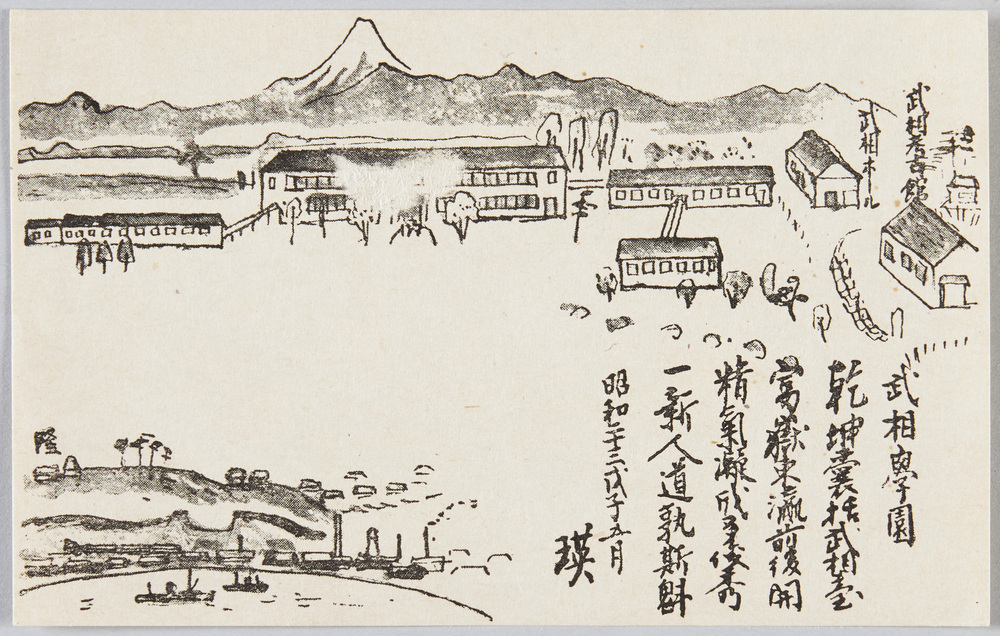 武相考古館
武相ホール
武相學園
乾坤嚢括武相臺
富嶽東瀛前後開
精氣凝成多俊秀
一新人道孰斯魁
昭和二十三戊子五月
瑛